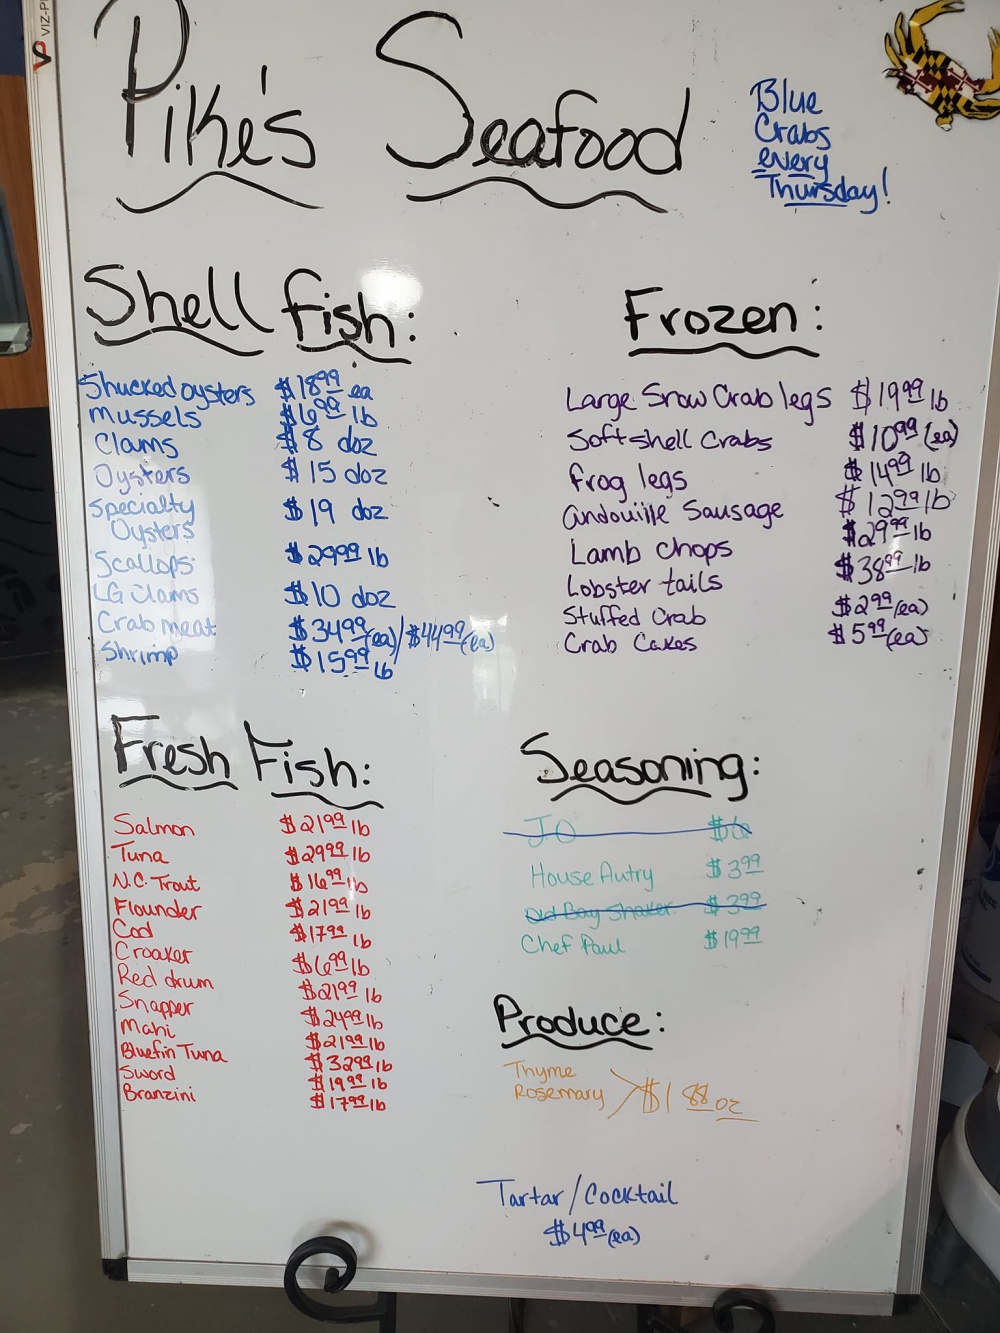 Pike's Seafood
Blue
Crabs
every
Thursday!
Shell fish:
Shucked oysters $18.99 ea
Mussels $6.99 lb
Clams $8 doz
Oysters $15 doz
Specialty
Oysters $19 doz
Scallops $29.99 lb
LG Clams $10 doz
Crab meat $34.99(ea)/$44.99(ea)
Shrimp $15.99 lb
Frozen:
Large Snow Crab legs $19.99 lb
Soft shell Crabs $10.99 (ea)
frog legs $14.99 lb
andouille Sausage $12.99 lb
Lamb chops $29.99 lb
Lobster tails $38.99 lb
Stuffed Crab $2.99 (ea)
Crab Cakes $5.99 (ea)
Fresh Fish:
Salmon $21.99 lb
Tuna $29.99 lb
N.C. Trout $16.99 lb
Flounder $21.99 lb
Cod $17.99 lb
Croaker $6.99 lb
Red drum $21.99 lb
Snapper $24.99 lb
Mahi $21.99 lb
Bluefin Tuna $32.99 lb
Sword $19.99 lb
Branzini $17.99 lb
Seasoning:
J.O $6
House Autry $3.99
Old Bay Shaker $3.99
Chef Paul $19.99
Produce:
Thyme
Rosemary $1.88 oz
Tartar/Cocktail
$4.99 (ea)